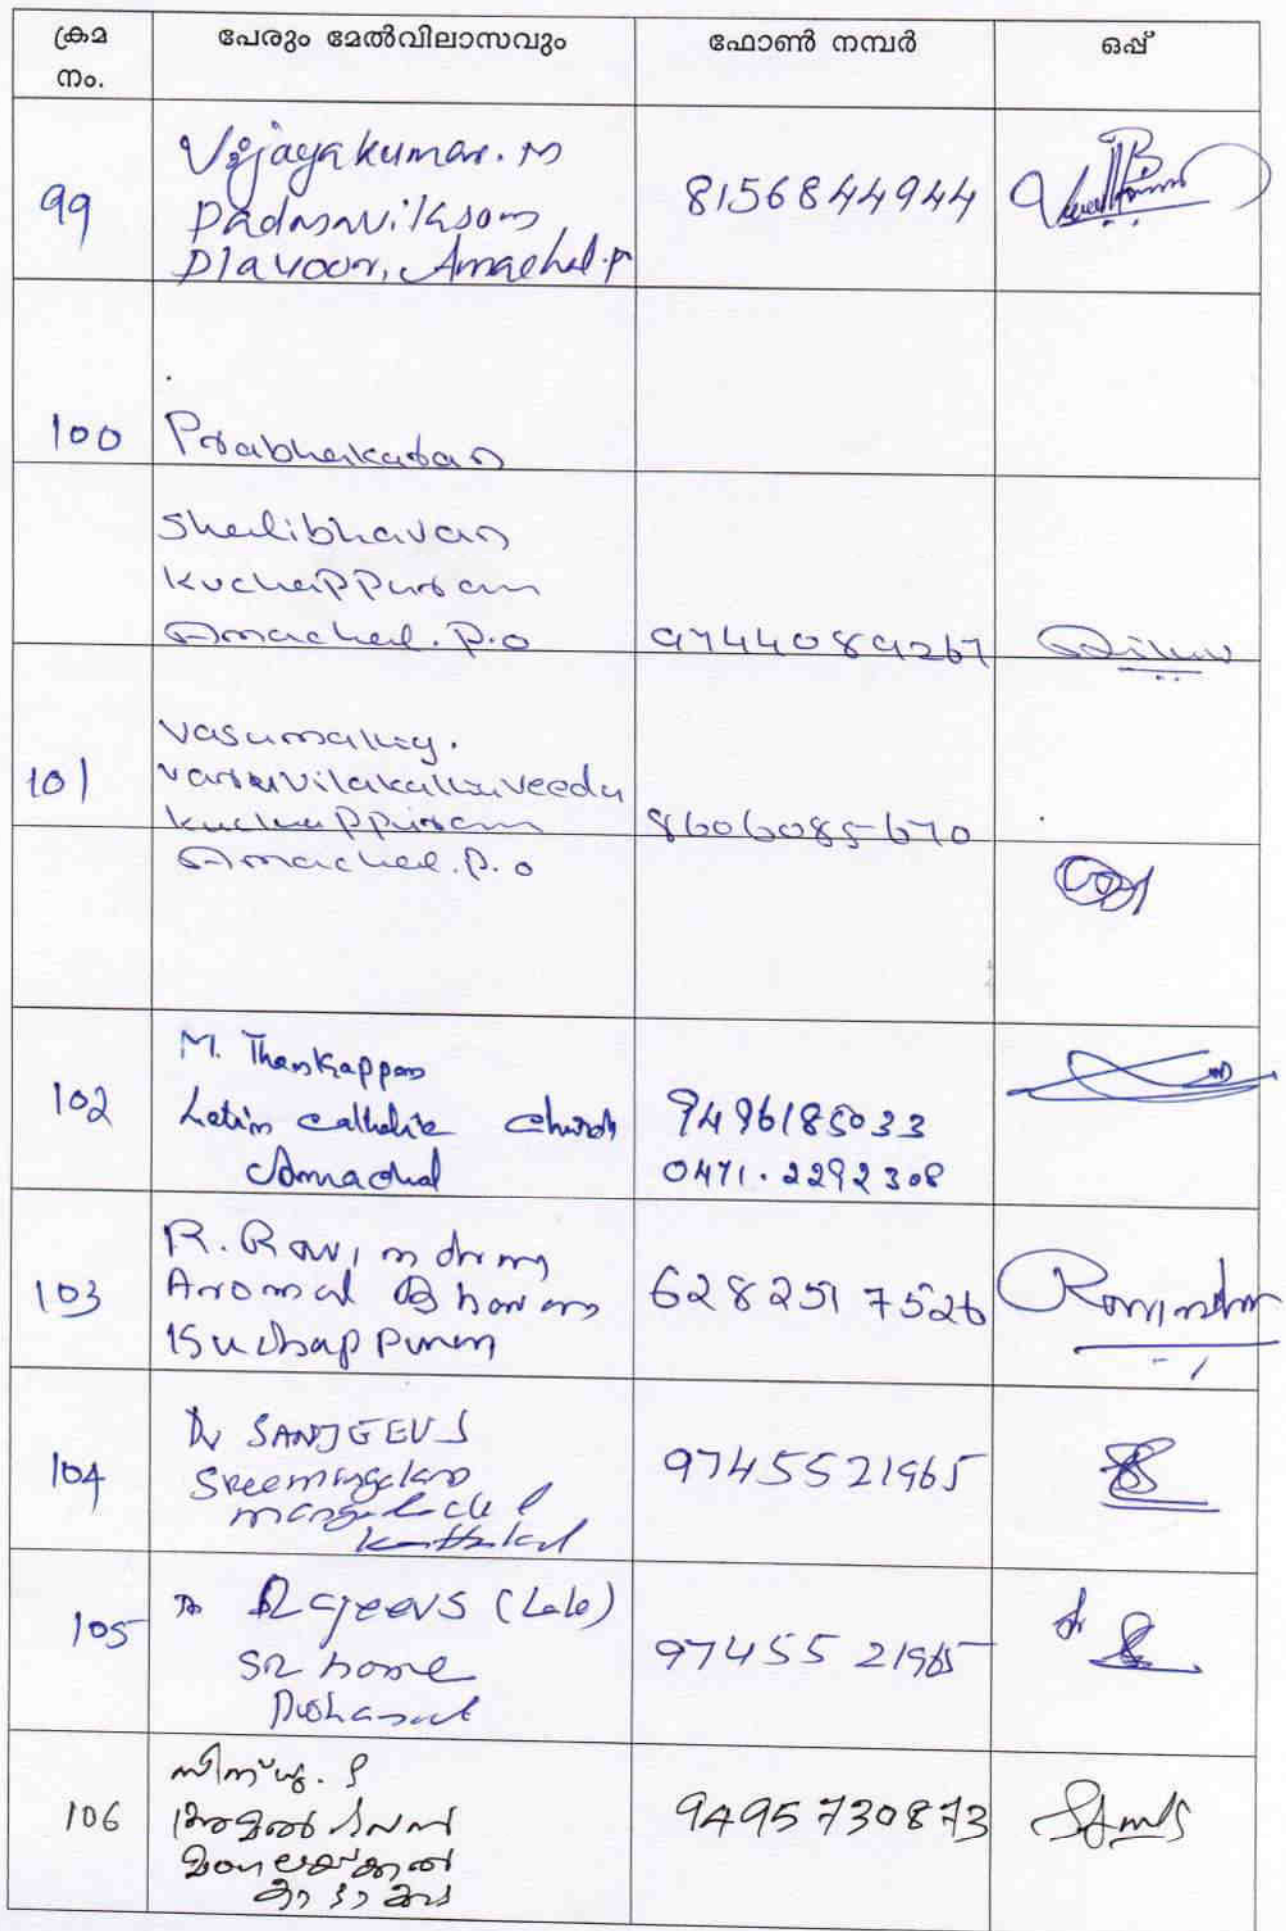 ക്രമ നം. പേരും മേൽവിലാസവും ഫോൺ നമ്പർ ഒപ്പ്
99
Vijayakumar. M
Padmavilasom
Plavoor, Amachal. P
8156844944
100
Prabhakaran
Shalibhavan
Kuchappuram
Amachal. P.O
9744089267
101
Vasumathy.
veedu
Kuchappuram
Amachal. P.O
8606085670
102
M. Thankappan
Latin Catholic Church
Amachal
9496185033
0471.2292308
103
R. Ravindran
Aromal Bhavan
Kuchappuram
6282517526
Ravindran
104
Dr SANJEEV S
Sreemangalam
Kattakad
9745521965
105
Dr Rajeev S (Late)
SR home
97455 21965
106
സിന്ധു. S
അമൽ ഭവൻ
മംഗലയ്ക്കൽ
കാട്ടാക്കട
9495730873